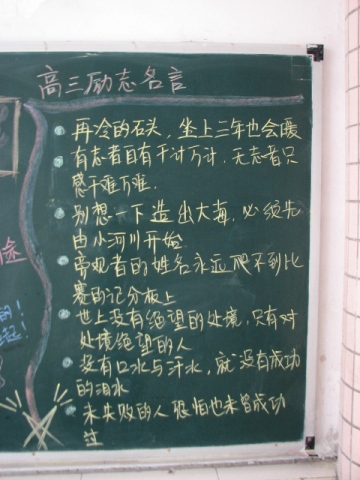 高三励志名言
再冷的石头，坐上三年也会暖
有志者自有千计万计，无志者只
感千难万难.
别想一下造出大海，必须先
由小河川开始.
旁观者的姓名永远爬不到比
赛的记分板上
世上没有绝望的处境，只有对
处境绝望的人
没有口水与汗水，就没有成功
的泪水
未失败的人恐怕也未曾成功
过
途
的！
起！